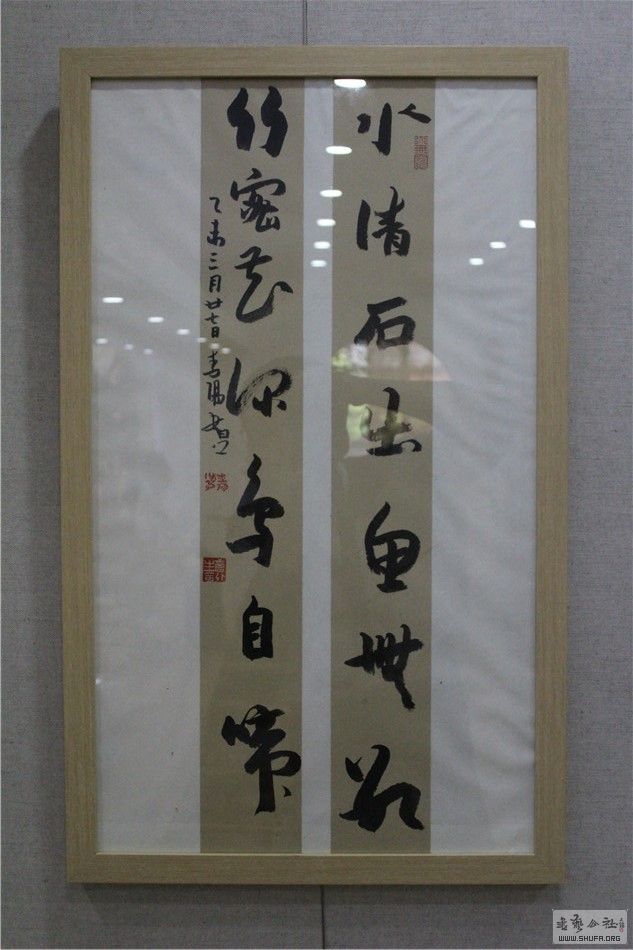 水清石出鱼無数
竹密花深鸟自啼
乙未三月廿七日
書藝公社
WWW.SHUFA.ORG